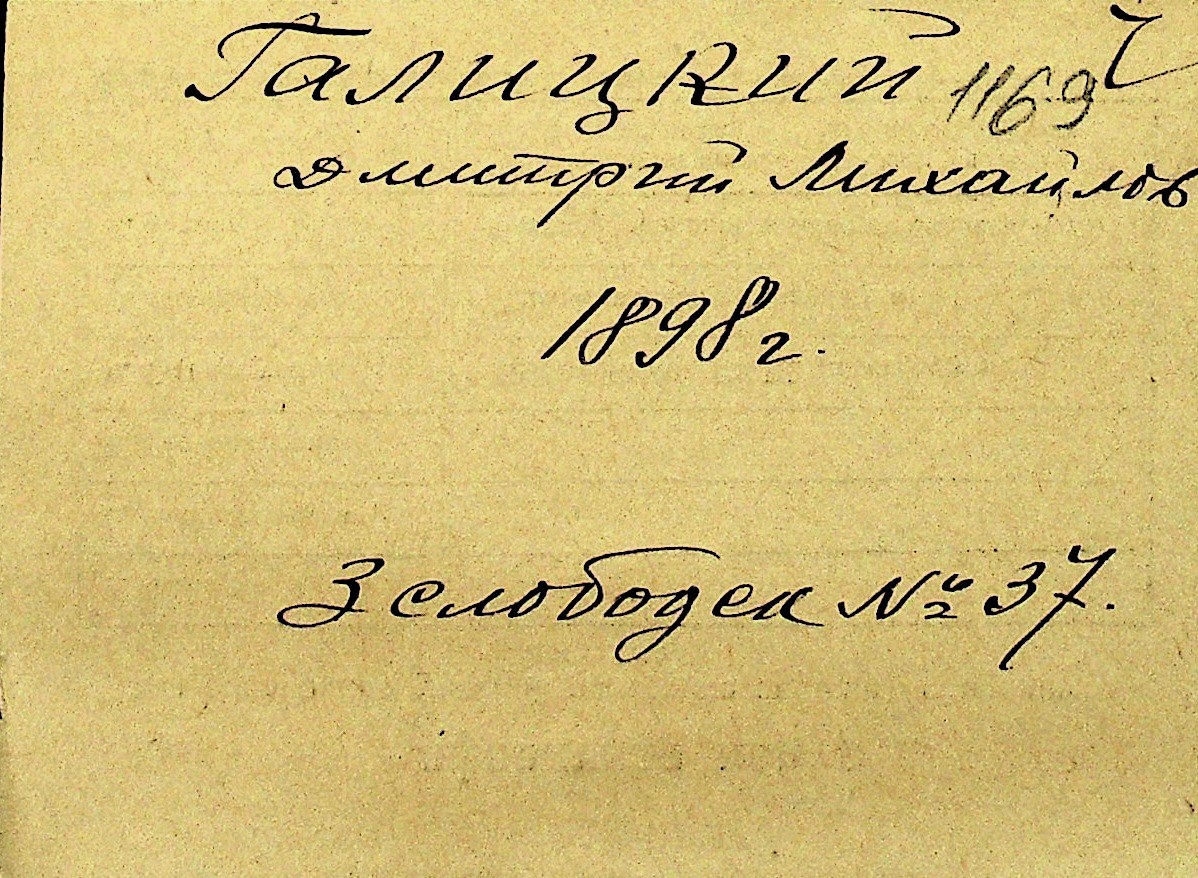 Галицкий 1169
Дмитрий Михайлов
1898 г.
3 слободск № 37.